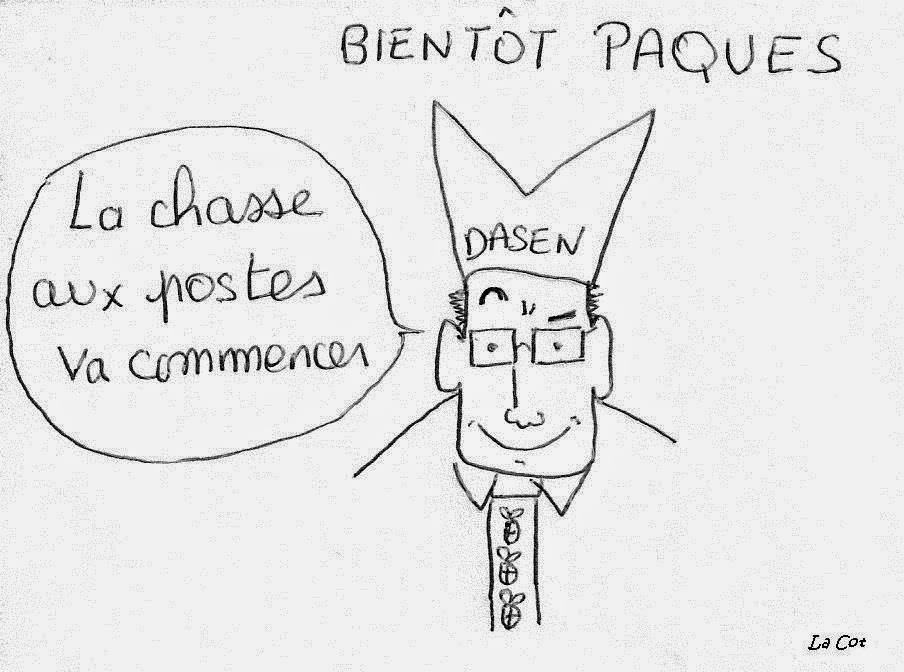 BIENTÔT PAQUES
La chasse
aux postes
va commencer
DASEN
La Cot